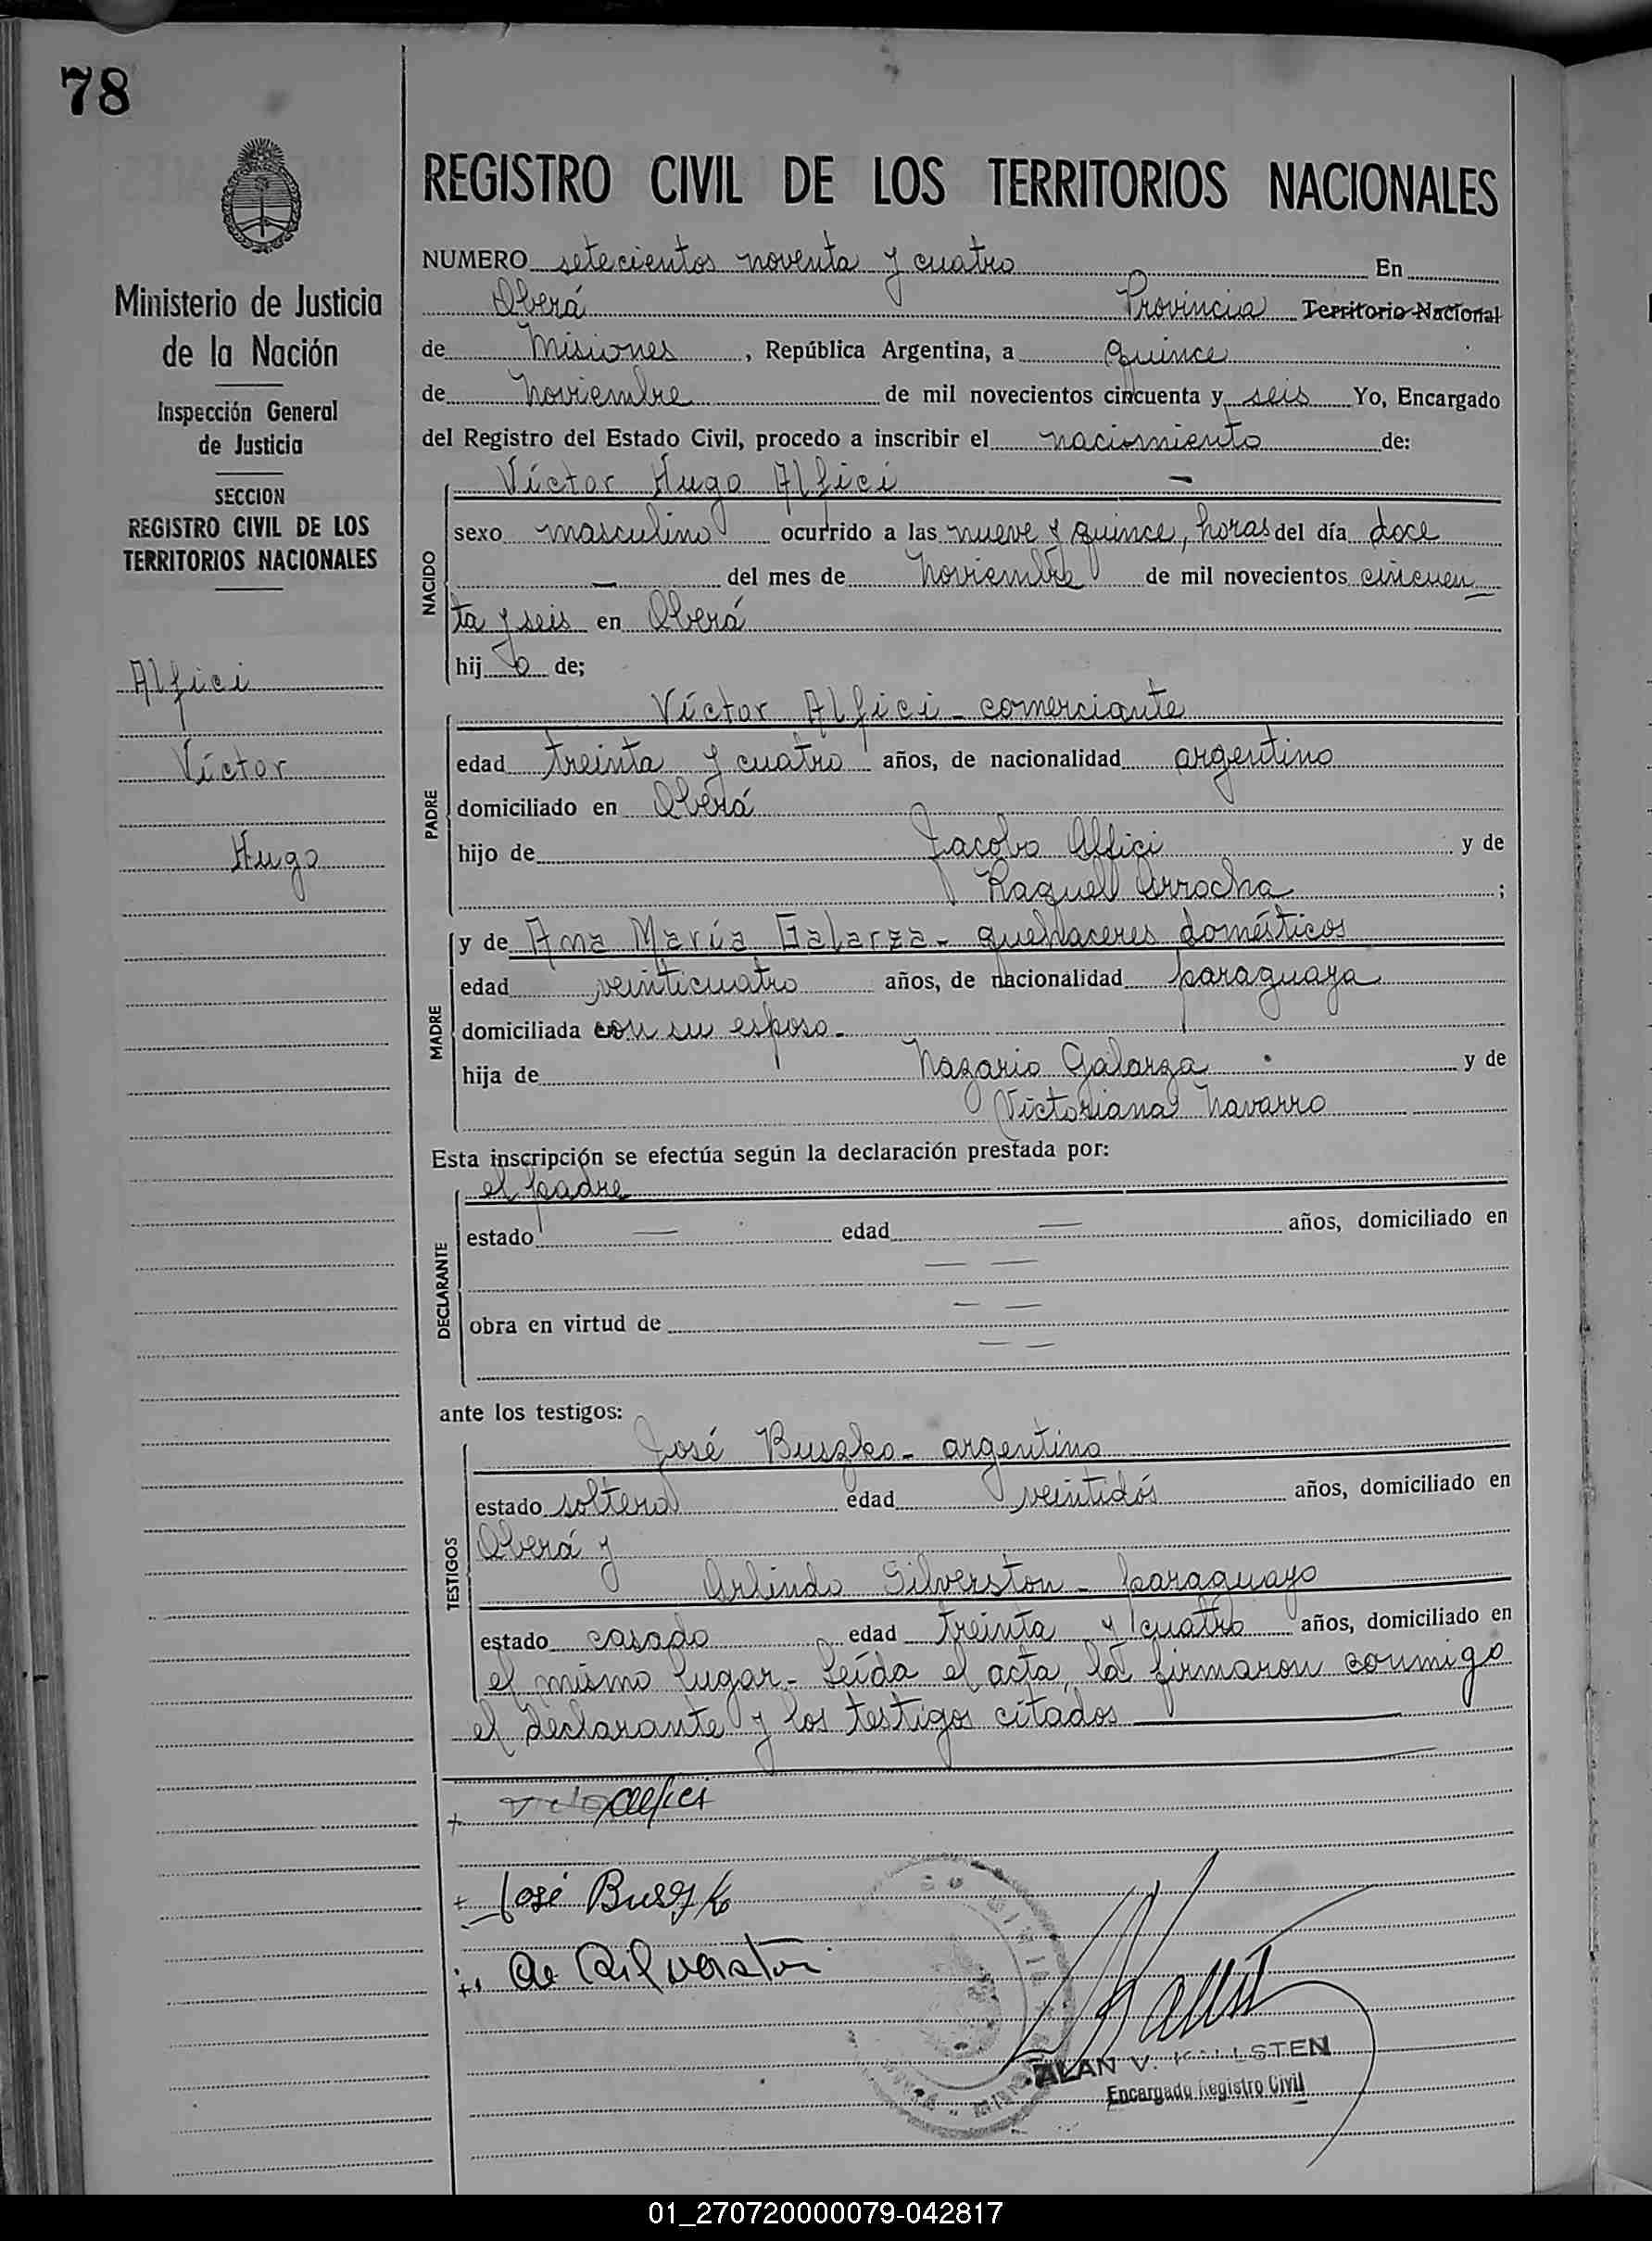 78
REGISTRO CIVIL DE LOS TERRITORIOS NACIONALES
Ministerio de Justicia
de la Nación
Inspección General
de Justicia
SECCION
REGISTRO CIVIL DE LOS
TERRITORIOS NACIONALES
Alfici
Víctor
Hugo
NUMERO setecientos noventa y cuatro En
Oberá Provincia Territorio Nacional
de Misiones, República Argentina, a quince
de noviembre de mil novecientos cincuenta y seis Yo, Encargado
del Registro del Estado Civil, procedo a inscribir el nacimiento de:
NACIDO
Víctor Hugo Alfici -
sexo masculino ocurrido a las nueve y quince, horas del día doce
— del mes de noviembre de mil novecientos cincuen
ta y seis en Oberá
hij o de;
PADRE
Víctor Alfici - comerciante
edad treinta y cuatro años, de nacionalidad argentino
domiciliado en Oberá
hijo de Jacobo Alfici y de
Raquel Arrocha ;
MADRE
y de Ana María Galarza - quehaceres domésticos
edad veinticuatro años, de nacionalidad paraguaya
domiciliada con su esposo -
hija de Nazario Galarza y de
Victoriana Navarro
Esta inscripción se efectúa según la declaración prestada por:
DECLARANTE
el padre
estado — edad — años, domiciliado en
— —
obra en virtud de — —
— —
ante los testigos:
TESTIGOS
José Buszko - argentino
estado soltero edad veintidós años, domiciliado en
Oberá y
Arlindo Silverston - paraguayo
estado casado edad treinta y cuatro años, domiciliado en
el mismo lugar - Leída el acta, la firmaron conmigo
el declarante y los testigos citados
Alfici
José Buszko
Silverston
ALAN V. LSTEN
Encargado Registro Civil
01_270720000079-042817